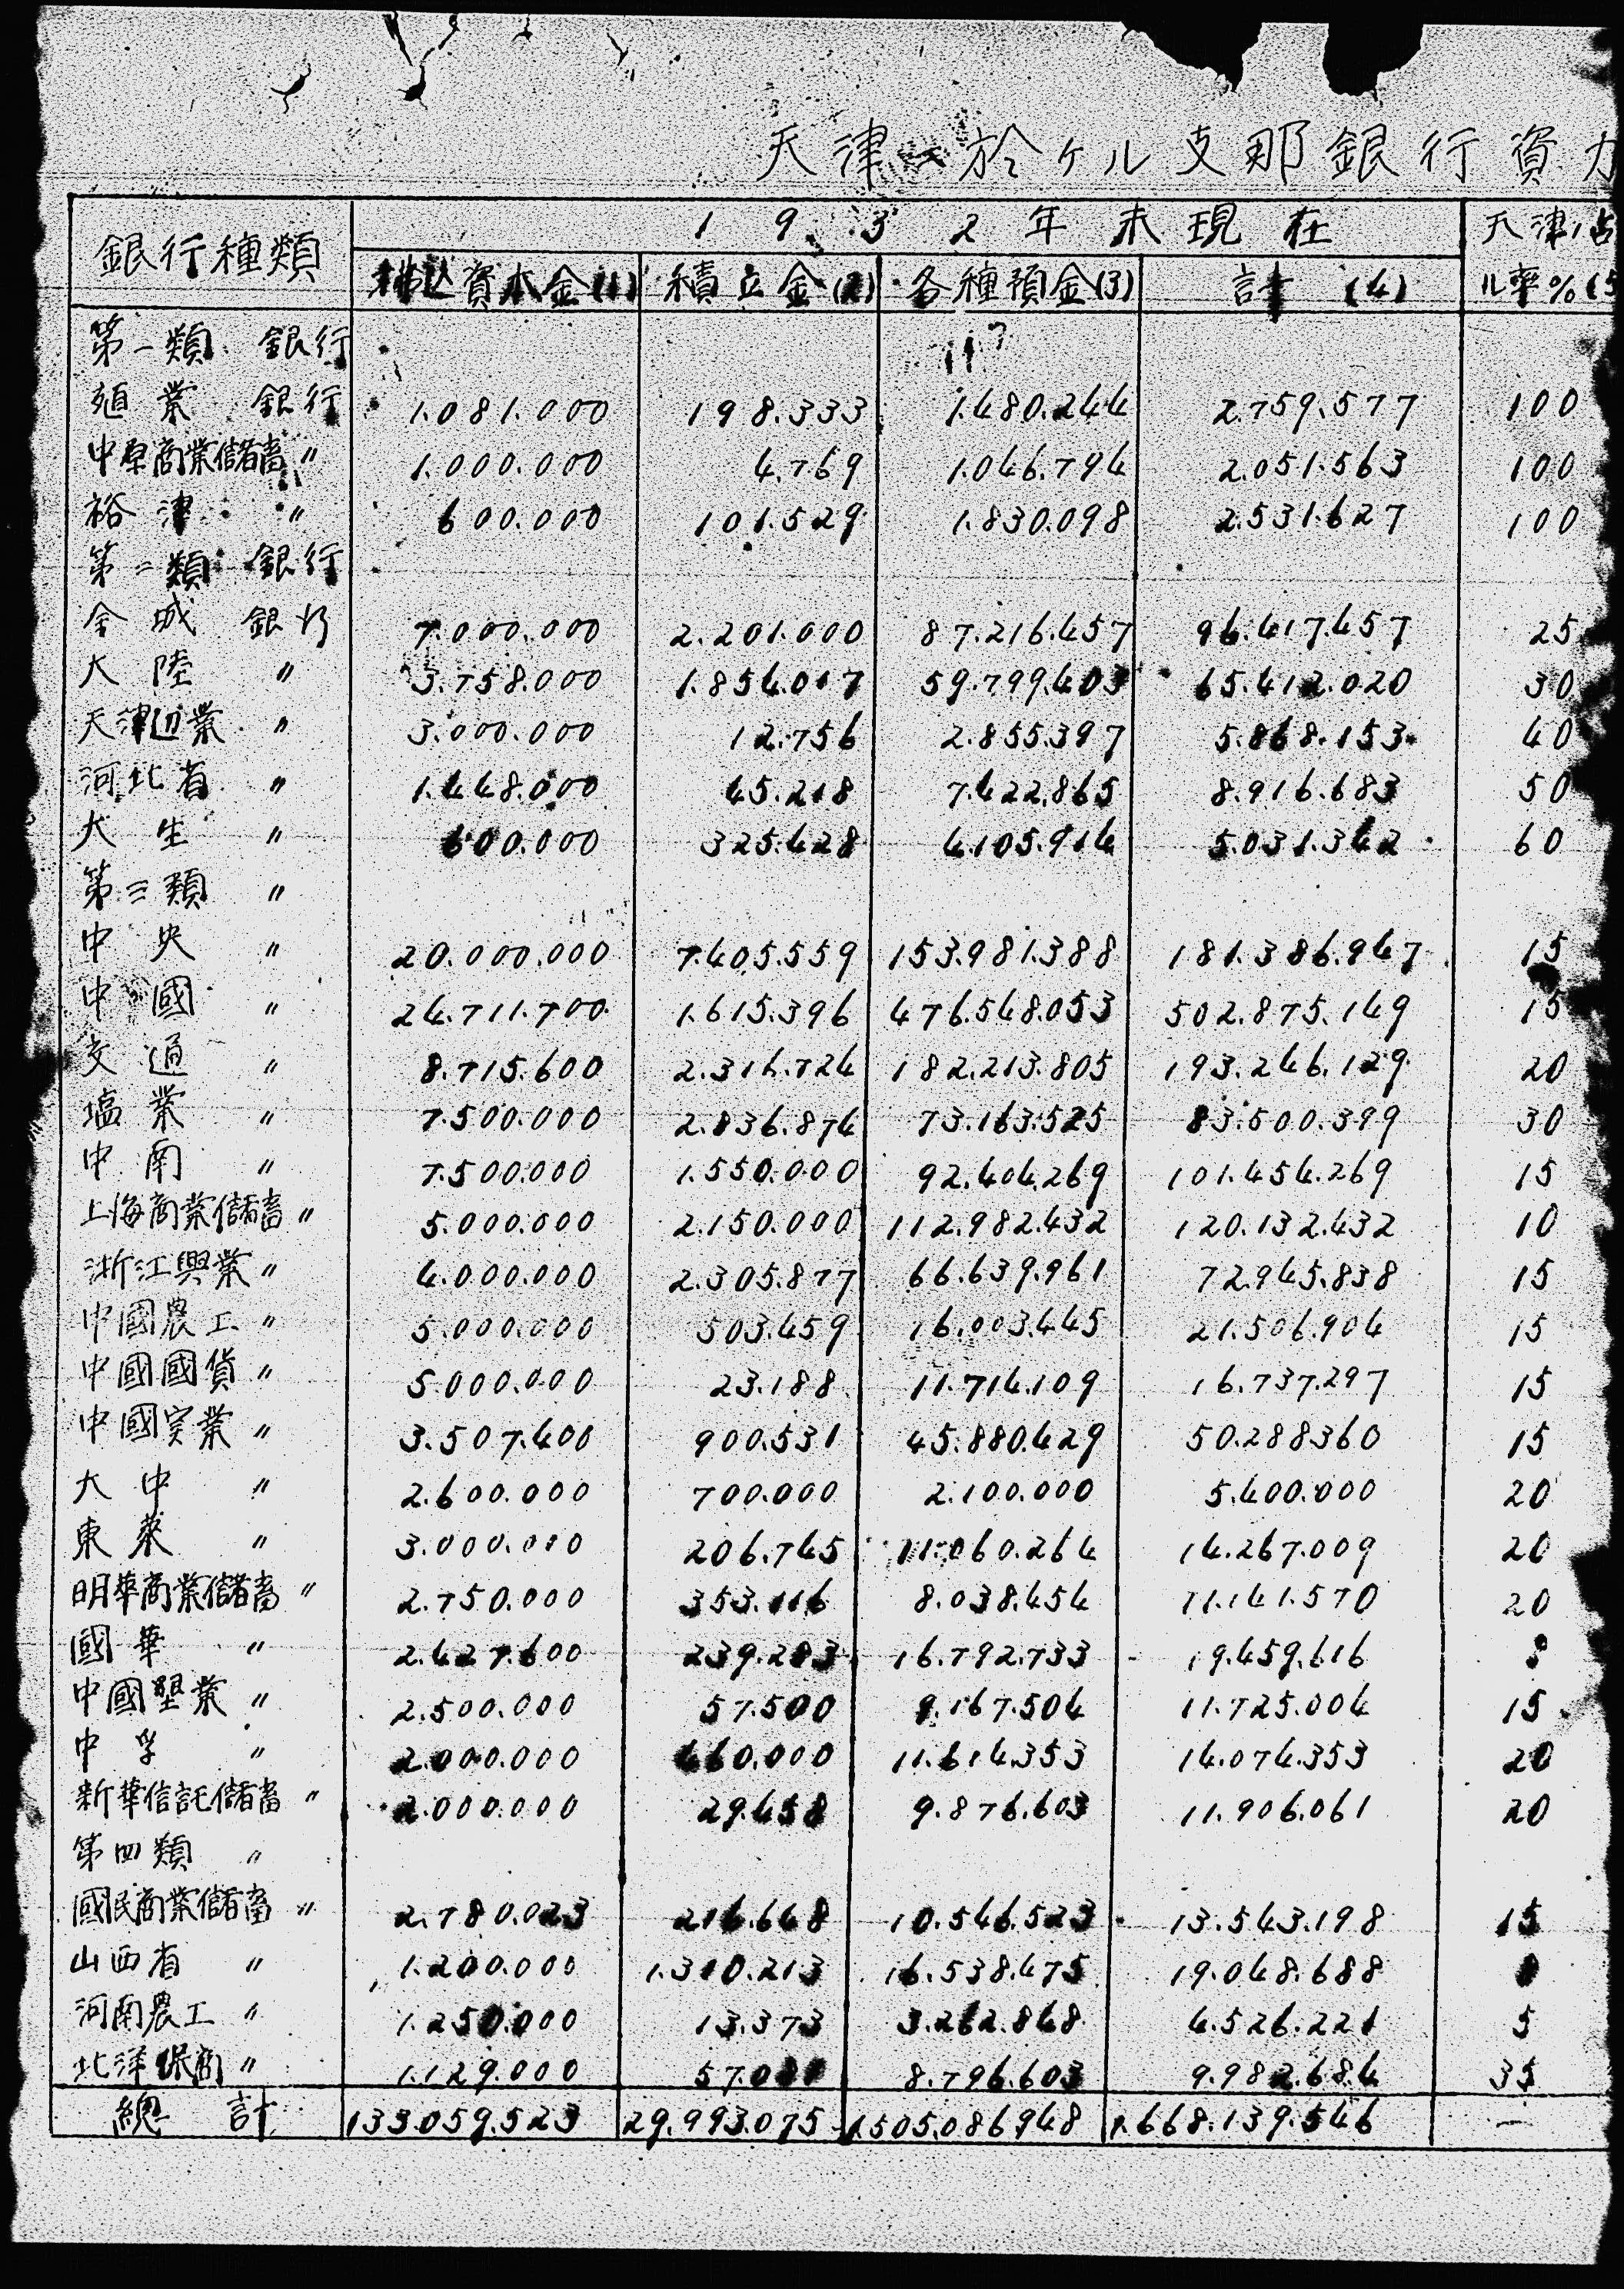 天津ニ於ケル支那銀行資力
銀行種類 1932年末現在 天津ノ占
払込資本金(1) 積立金(2) 各種預金(3) 計 (4) ル率%(5
第一類 銀行
殖業 銀行 1.081.000 198.333 1.480.244 2.759.577 100
中原商業儲蓄 〃 1.000.000 4.769 1.046.794 2.051.563 100
裕津 〃 600.000 101.529 1.830.098 2.531.627 100
第二類 銀行
金城 銀行 7.000.000 2.201.000 87.216.457 96.417.457 25
大陸 〃 3.758.000 1.854.017 59.799.403 65.412.020 30
天津辺業 〃 3.000.000 12.756 2.855.397 5.868.153 40
河北省 〃 1.448.000 45.218 7.422.865 8.916.683 50
大生 〃 600.000 325.428 4.105.914 5.031.342 60
第三類 〃
中央 〃 20.000.000 7.405.559 153.981.388 181.386.947 15
中國 〃 24.711.700 1.615.396 476.548.053 502.875.149 15
交通 〃 8.715.600 2.316.724 182.213.805 193.246.129 20
塩業 〃 7.500.000 2.836.874 73.163.525 83.500.399 30
中南 〃 7.500.000 1.550.000 92.404.269 101.454.269 15
上海商業儲蓄 〃 5.000.000 2.150.000 112.982.432 120.132.432 10
浙江興業 〃 4.000.000 2.305.877 66.639.961 72.945.838 15
中國農工 〃 5.000.000 503.459 16.003.445 21.506.904 15
中國國貨 〃 5.000.000 23.188 11.714.109 16.737.297 15
中國実業 〃 3.507.400 900.531 45.880.429 50.288360 15
大中 〃 2.600.000 700.000 2.100.000 5.400.000 20
東萊 〃 3.000.000 206.745 11.060.264 14.267.009 20
明華商業儲蓄 〃 2.750.000 353.116 8.038.454 11.141.570 20
國華 〃 2.427.600 239.283 16.792.733 19.459.616 8
中國墾業 〃 2.500.000 57.500 9.167.504 11.725.004 15
中孚 〃 2.000.000 460.000 11.614.353 14.074.353 20
新華信託儲蓄 〃 2.000.000 29.458 9.876.603 11.906.061 20
第四類 〃
國民商業儲蓄 〃 2.780.023 216.648 10.546.523 13.543.198 15
山西省 〃 1.200.000 1.310.213 16.538.475 19.048.688
河南農工 〃 1.250.000 13.373 3.262.848 4.526.221 5
北洋保商 〃 1.129.000 8.796.603 9.982.684 35
總計 133.059.523 29.993.075 1.505.086.948 1.668.139.546 —